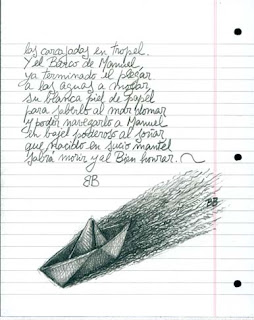 las carcajadas en tropel.
Y el Barco de Manuel,
ya terminado el plegar
a las aguas a mojar,
su blanca piel de papel
para saberlo al mar domar
y poder navegarlo a Manuel
en bajel poderoso al soñar
que nacido en sucio mantel
sabrá morir y al Bien honrar.
BB
BB